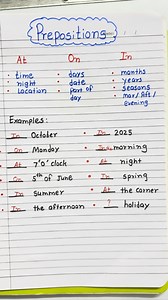 Prepositions
At On In
• time • days • months
• night • date • years
• location • part of • seasons
day • mor/aft/
evening
Examples:
• In October • In 2025
• On Monday • In morning
• At 7'0' clock • At night
• On 5th of June • In spring
• In Summer • At the corner
• In the afternoon • ? holiday